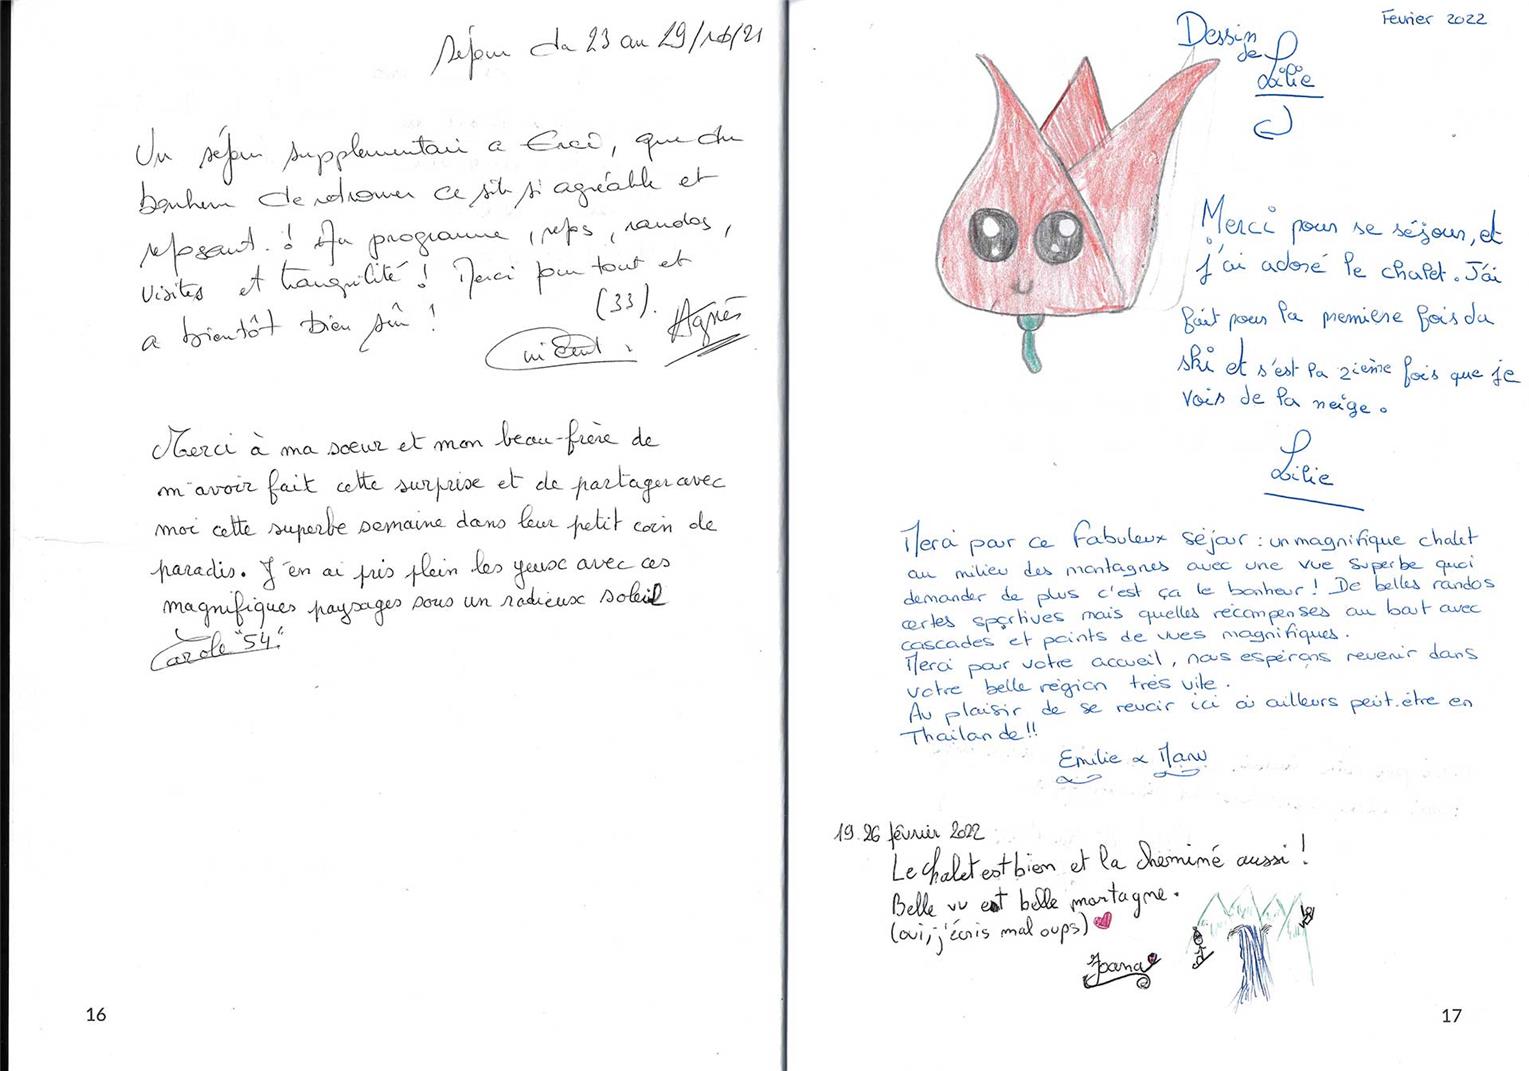 Séjour du 23 au 29/10/21
Un séjour supplementaire a , que du
bonheur de retrouver ce site si agréable et
reposant.! Au programme, reps, randos,
visites et tranquilité! Merci pour tout et
a bientôt bien sûr! (33).
Vincent. Agnès
Merci à ma sœur et mon beau-frère de
m'avoir fait cette surprise et de partager avec
moi cette superbe semaine dans leur petit coin de
paradis. J'en ai pris plein les yeux avec ces
magnifiques paysages sous un radieux soleil
Carole "54"
16
Février 2022
Dessin
de
Lilie
Merci pour se séjour, et
j'ai adoré le chalet. J'ai
fait pour la première fois du
ski et s'est la 2ième fois que je
vois de la neige.
Lilie
Merci pour ce fabuleux séjour : un magnifique chalet
au milieu des montagnes avec une vue superbe quoi
demander de plus c'est ça le bonheur! De belles randos
certes sportives mais quelles récompenses au bout avec
cascades et points de vues magnifiques.
Merci pour votre accueil, nous espérons revenir dans
votre belle région très vite.
Au plaisir de se revoir ici où ailleurs peut-être en
Thailande!!
Emilie & Manu
19.26 février 2022
Le chalet est bien et la cheminé aussi!
Belle vu et belle montagne.
(oui, j'écris mal oups)
Joana
17